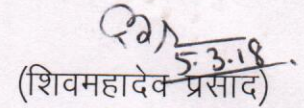 5.3.18
(शिवमहादेव प्रसाद)